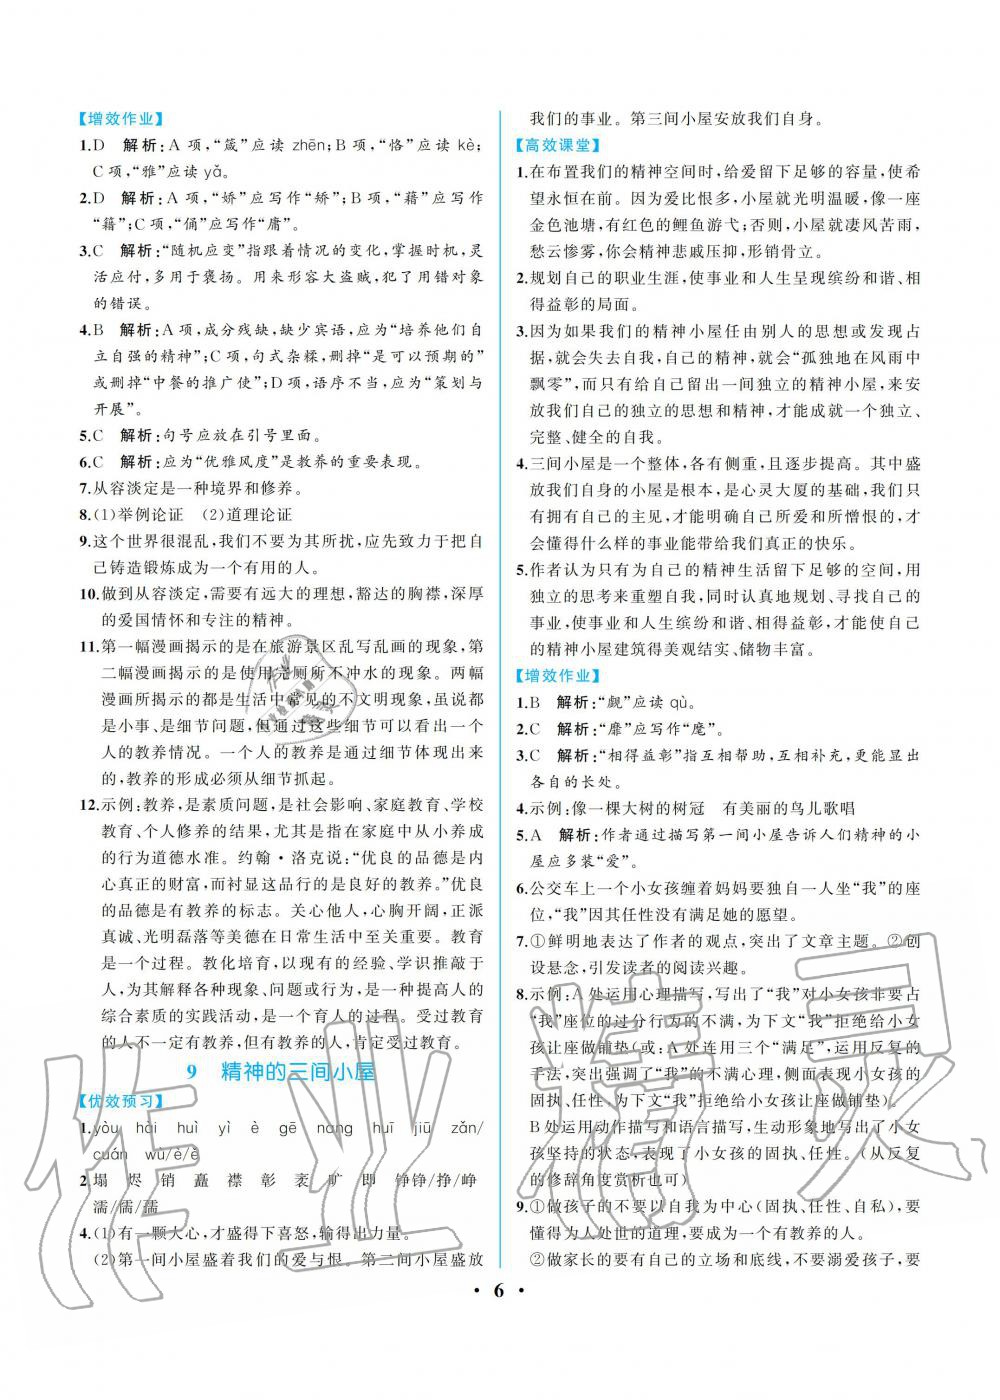 【增效作业】
1.D　解析:A 项,“箴”应读 zhēn;B 项,“恪”应读 kè;
C 项,“雅”应读 yǎ。
2.D　解析:A 项,“娇”应写作“矫”;B 项,“藉”应写作
“籍”;C 项,“俑”应写作“庸”。
3.C　解析:“随机应变”指跟着情况的变化,掌握时机,灵
活应付,多用于褒扬。用来形容大盗贼,犯了用错对象
的错误。
4.B　解析:A 项,成分残缺,缺少宾语,应为“培养他们自
立自强的精神”;C 项,句式杂糅,删掉“是可以预期的”
或删掉“中餐的推广使”;D 项,语序不当,应为“策划与
开展”。
5.C　解析:句号应放在引号里面。
6.C　解析:应为“优雅风度”是教养的重要表现。
7.从容淡定是一种境界和修养。
8.(1)举例论证　(2)道理论证
9.这个世界很混乱,我们不要为其所扰,应先致力于把自
己铸造锻炼成为一个有用的人。
10.做到从容淡定,需要有远大的理想,豁达的胸襟,深厚
的爱国情怀和专注的精神。
11.第一幅漫画揭示的是在旅游景区乱写乱画的现象,第
二幅漫画揭示的是使用完厕所不冲水的现象。两幅
漫画所揭示的都是生活中常见的不文明现象,虽说都
是小事、是细节问题,但通过这些细节可以看出一个
人的教养情况。一个人的教养是通过细节体现出来
的,教养的形成必须从细节抓起。
12.示例:教养,是素质问题,是社会影响、家庭教育、学校
教育、个人修养的结果,尤其是指在家庭中从小养成
的行为道德水准。约翰·洛克说:“优良的品德是内
心真正的财富,而衬显这品行的是良好的教养。”优良
的品德是有教养的标志。关心他人,心胸开阔,正派
真诚、光明磊落等美德在日常生活中至关重要。教育
是一个过程。教化培育,以现有的经验、学识推敲于
人,为其解释各种现象、问题或行为,是一种提高人的
综合素质的实践活动,是一个育人的过程。受过教育
的人不一定有教养,但有教养的人,肯定受过教育。
9　精神的三间小屋
【优效预习】
1.yòu　hài　huì　yì　è　gē　nang　huī　jiū　zǎn/
cuán　wù/è/ě
2　塌　烬　销　矗　襟　彰　袤　旷　即　铮铮/挣/峥
濡/儒/孺
4.(1)有一颗大心,才盛得下喜怒,输得出力量。
(2)第一间小屋盛着我们的爱与恨。第二间小屋盛放
我们的事业。第三间小屋安放我们自身。
【高效课堂】
1.在布置我们的精神空间时,给爱留下足够的容量,使希
望永恒在前。因为爱比恨多,小屋就光明温暖,像一座
金色池塘,有红色的鲤鱼游弋;否则,小屋就凄风苦雨,
愁云惨雾,你会精神悲戚压抑,形销骨立。
2.规划自己的职业生涯,使事业和人生呈现缤纷和谐、相
得益彰的局面。
3.因为如果我们的精神小屋任由别人的思想或发现占
据,就会失去自我,自己的精神,就会“孤独地在风雨中
飘零”,而只有给自己留出一间独立的精神小屋,来安
放我们自己的独立的思想和精神,才能成就一个独立、
完整、健全的自我。
4.三间小屋是一个整体,各有侧重,且逐步提高。其中盛
放我们自身的小屋是根本,是心灵大厦的基础,我们只
有拥有自己的主见,才能明确自己所爱和所憎恨的,才
会懂得什么样的事业能带给我们真正的快乐。
5.作者认为只有为自己的精神生活留下足够的空间,用
独立的思考来重塑自我,同时认真地规划、寻找自己的
事业,使事业和人生缤纷和谐、相得益彰,才能使我们
的精神小屋建筑得美观结实、储物丰富。
【增效作业】
1.B　解析:“觑”应读 qù。
2.C　解析:“靡”应写作“麾”。
3.C　解析:“相得益彰”指互相帮助,互相补充,更能显出
各自的长处。
4.示例:像一棵大树的树冠　有美丽的鸟儿歌唱
5.A　解析:作者通过描写第一间小屋告诉人们精神的小
屋应多装“爱”。
6.公交车上一个小女孩缠着妈妈要独自一人坐“我”的座
位,“我”因其任性没有满足她的愿望。
7.①鲜明地表达了作者的观点,突出了文章主题。②创
设悬念,引发读者的阅读兴趣。
8.示例:A 处运用心理描写,写出了“我”对小女孩非要占
“我”座位的过分行为的不满,为下文“我”拒绝给小女
孩让座做铺垫(或:A 处连用三个“满足”,运用反复的
手法,突出强调了“我”的不满心理,侧面表现小女孩的
固执、任性,为下文“我”拒绝给小女孩让座做铺垫)。
B 处运用动作描写和语言描写,生动形象地写出了小女
孩坚持的状态,表现了小女孩的固执、任性。(从反复
的修辞角度赏析也可)
9.①做孩子的不要以自我为中心(固执、任性、自私),要
懂得为人处世的道理,要成为一个有教养的人。
②做家长的要有自己的立场和底线,不要溺爱孩子,要
·6·
作业精灵